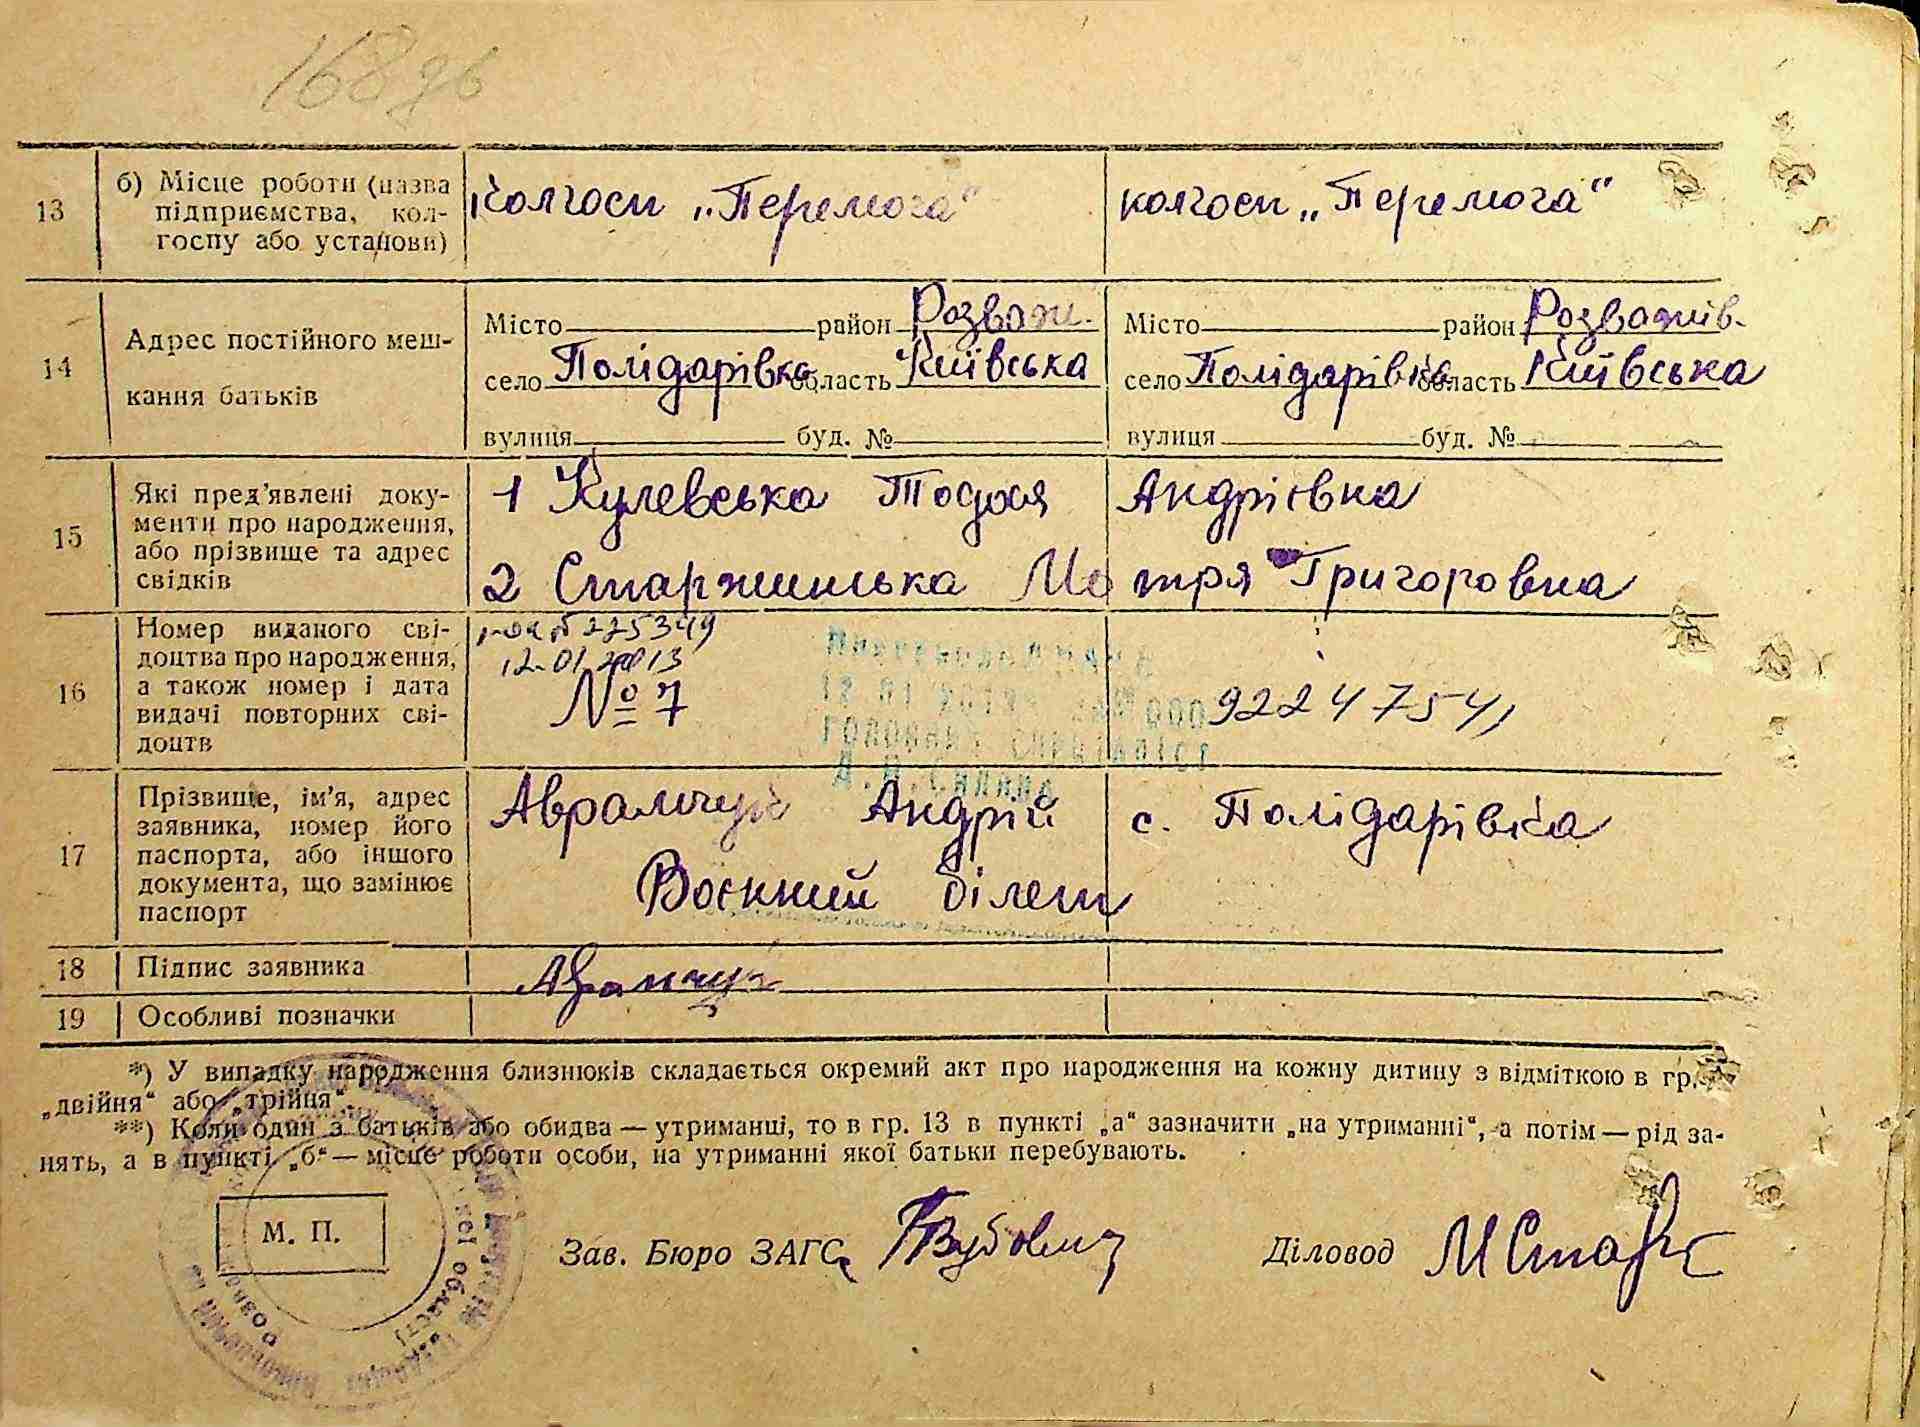 168 зв
13
б) Місце роботи (назва
підприємства, кол-
госпу або установи)
Колгосп „Перемога“
колгосп „Перемога“
14
Адрес постійного меш-
кання батьків
Місто район Розваж.
село Полідарівка область Київська
вулиця буд. №
Місто район Розважів.
село Полідарівка область Київська
вулиця буд. №
15
Які пред’явлені доку-
менти про народження,
або прізвище та адрес
свідків
1 Кулевська Тодося Андрієвна
2 Старжинська Мотря Григоровна
16
Номер виданого сві-
доцтва про народження,
а також номер і дата
видачі повторних сві-
доцтв
№ 225349
12.01.2013
№ 7
9224754
17
Прізвище, ім’я, адрес
заявника, номер його
паспорта, або іншого
документа, що замінює
паспорт
Аврамчук Андрій с. Полідарівка
Воєнний білет
18
Підпис заявника
Аврамчук
19
Особливі позначки
*) У випадку народження близнюків складається окремий акт про народження на кожну дитину з відміткою в гр.
„двійня“ або „трійня“.
**) Коли один з батьків або обидва — утриманці, то в гр. 13 в пункті „а“ зазначити „на утриманні“, а потім — рід за-
нять, а в пункті „б“ — місце роботи особи, на утриманні якої батьки перебувають.
М. П.
Зав. Бюро ЗАГС
Діловод